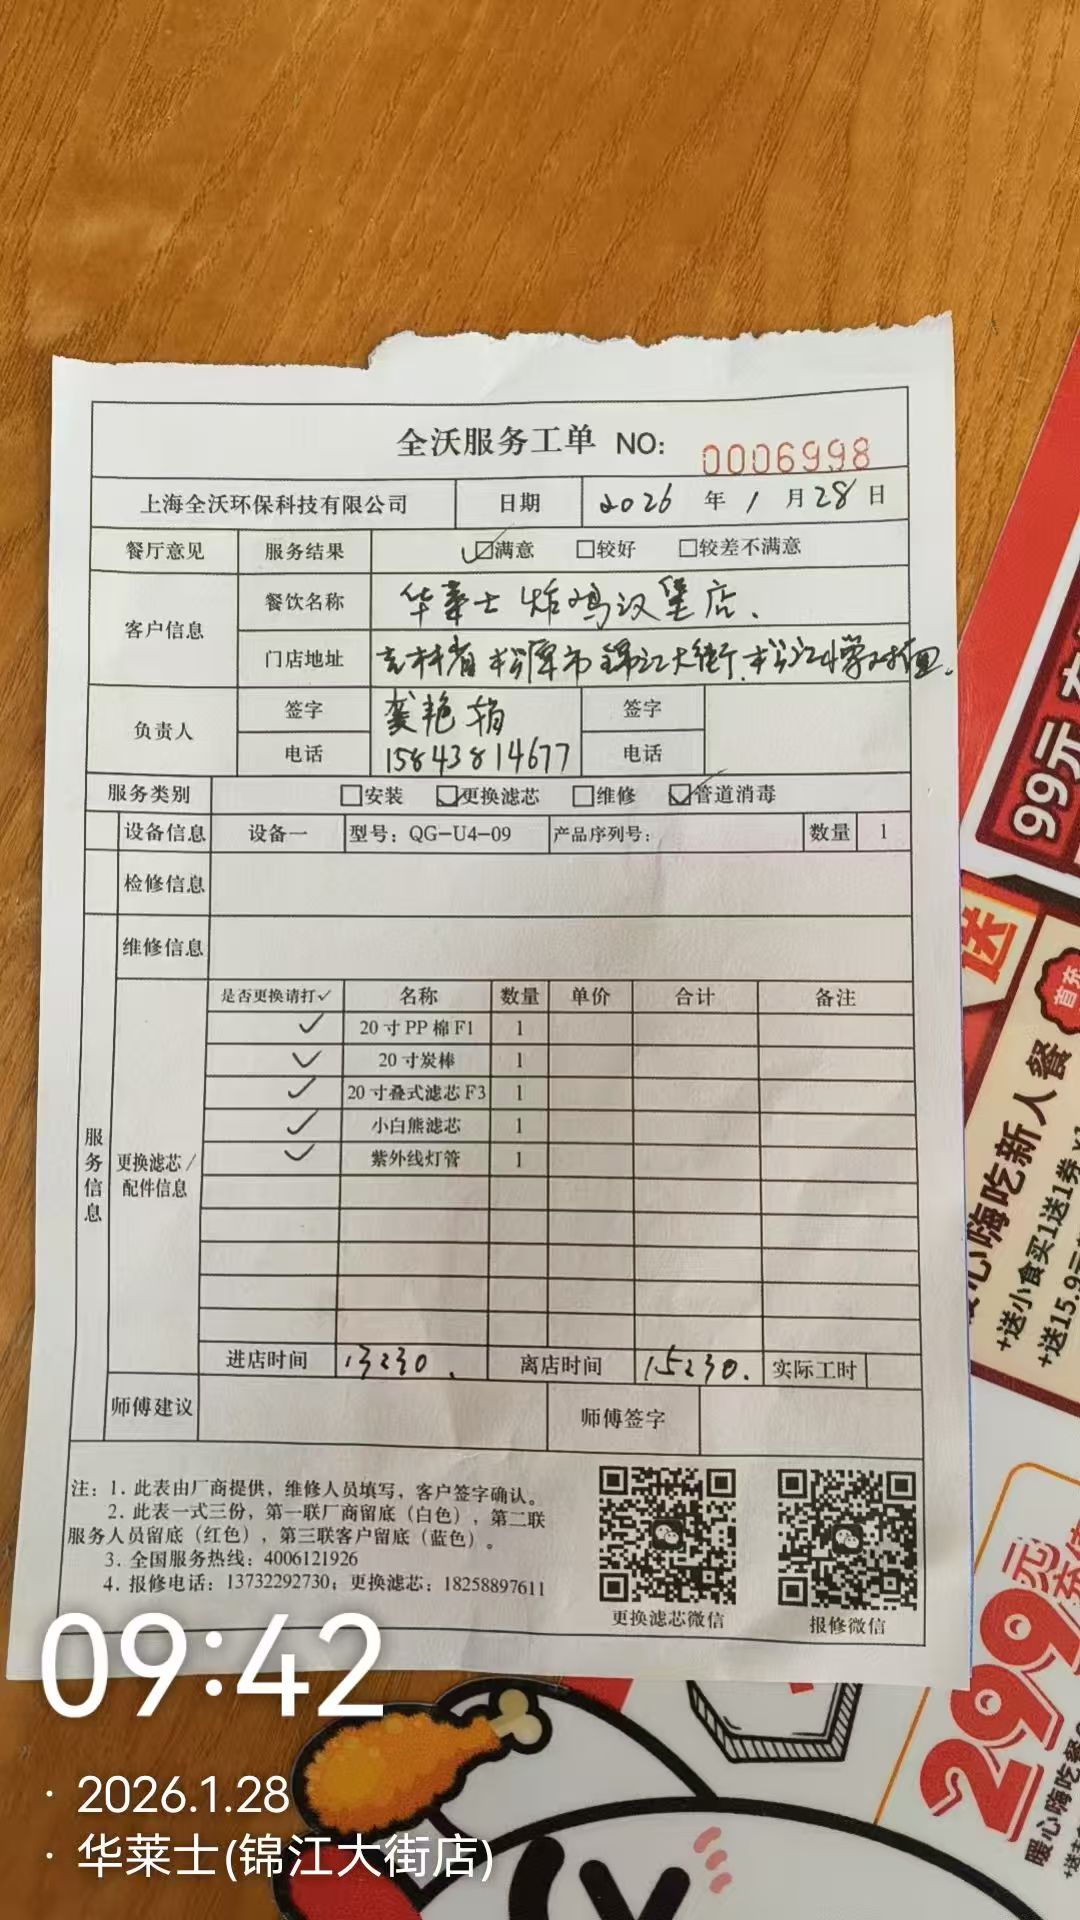 全沃服务工单 NO: 0006998
上海全沃环保科技有限公司 日期 2026 年 1 月 28 日
餐厅意见 服务结果 ☑满意 □较好 □较差不满意
客户信息 餐饮名称 华莱士 炸鸡汉堡店.
门店地址 吉林省 松原市 锦江大街, 松江小学对面.
负责人 签字 龚艳娟 签字
电话 15843814677 电话
服务类别 □安装 ☑更换滤芯 □维修 ☑管道消毒
设备信息 设备一 型号：QG-U4-09 产品序列号： 数量 1
检修信息
维修信息
服务信息
更换滤芯/
配件信息
是否更换请打✓ 名称 数量 单价 合计 备注
✓ 20寸PP棉F1 1
✓ 20寸炭棒 1
✓ 20寸叠式滤芯F3 1
✓ 小白熊滤芯 1
✓ 紫外线灯管 1
进店时间 13:30. 离店时间 15:30. 实际工时
师傅建议 师傅签字
注：1. 此表由厂商提供，维修人员填写，客户签字确认。
2. 此表一式三份，第一联厂商留底（白色），第二联
服务人员留底（红色），第三联客户留底（蓝色）。
3. 全国服务热线：4006121926
4. 报修电话：13732292730；更换滤芯：18258897611
更换滤芯微信 报修微信
09:42
· 2026.1.28
· 华莱士(锦江大街店)
99元
送
首充
暖心嗨吃新人餐
+送小食买1送1券
+送15.9元
299元
暖心嗨吃餐